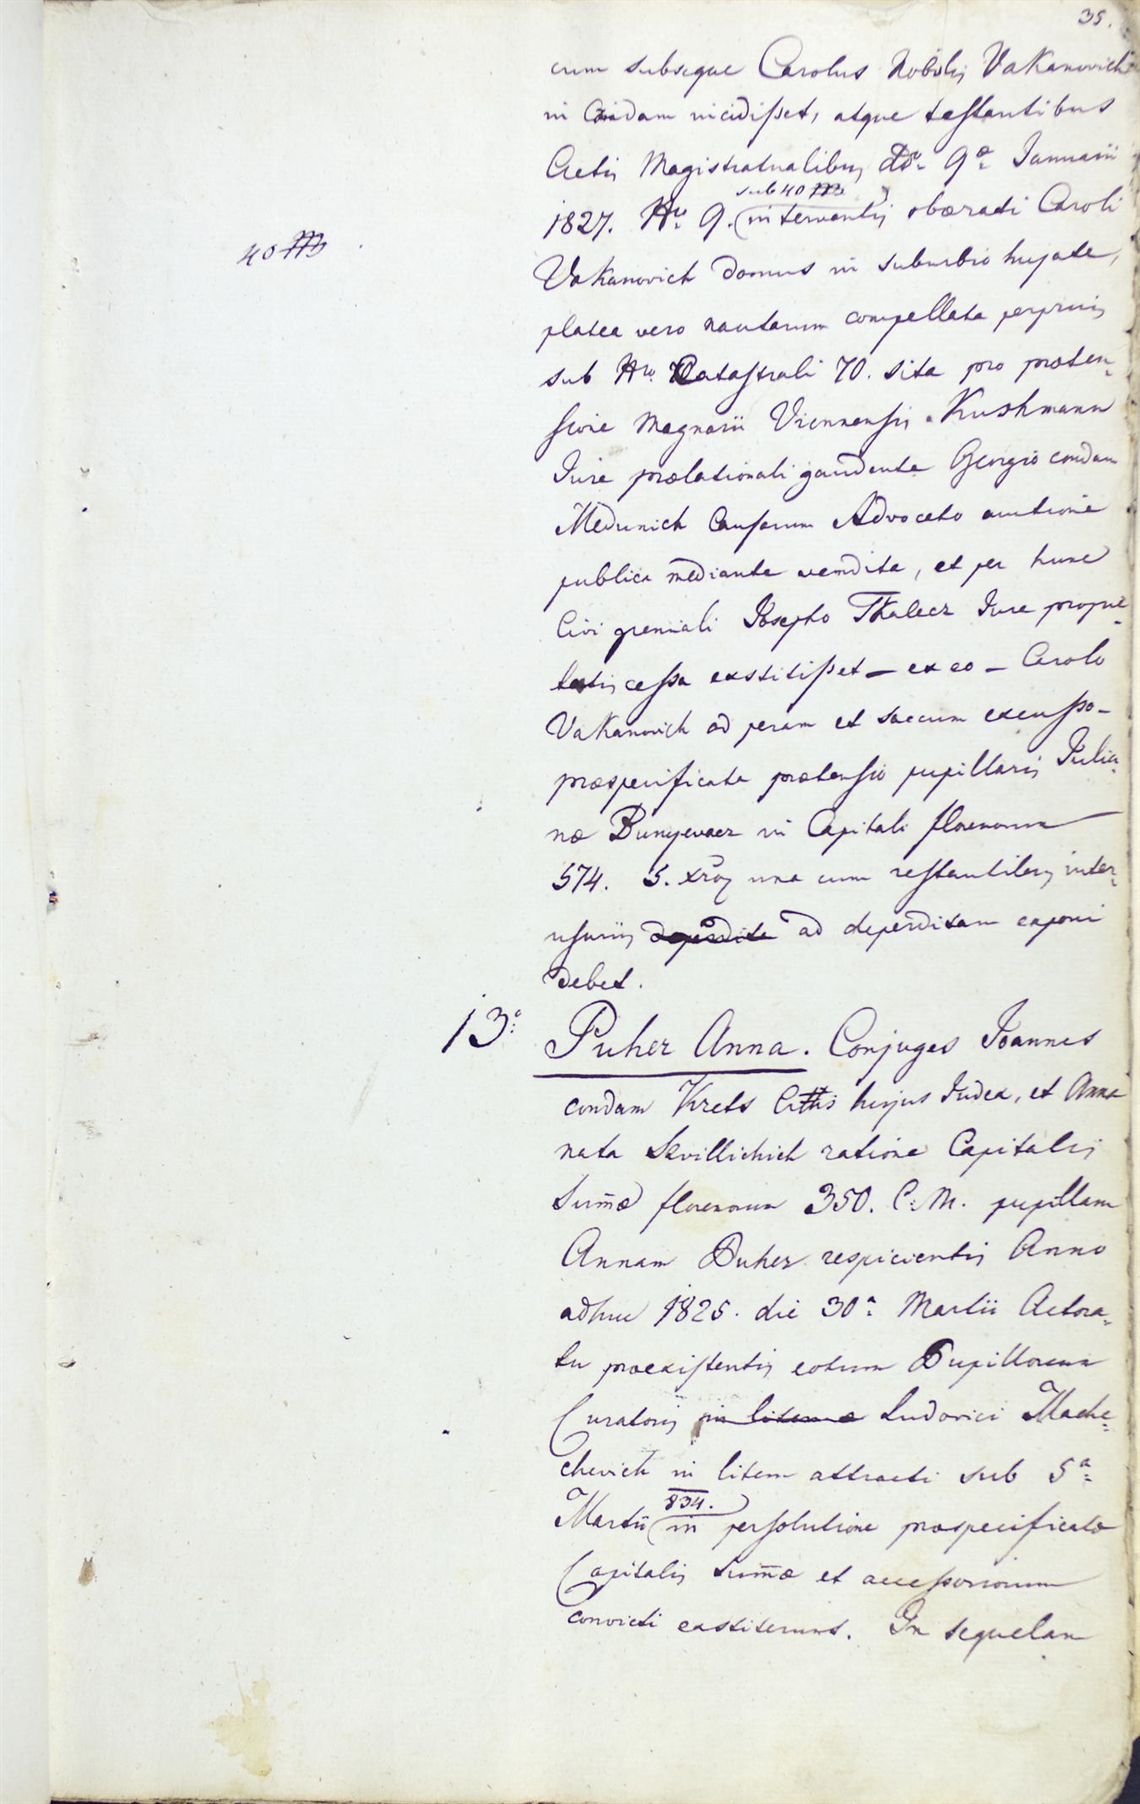 35.
cum subseque Carolus Nobilis Vakanovich
in Cridam incidisset, atque testantibus
Actis Magistratualibus ddo 9a Januarii
sub 40
1827. Nro 9. interventis obærati Caroli
40
Vakanovich domus in suburbio hujate,
platea vero nautarum compellata perprius
sub Nro Catastrali 70. sita pro præten-
sione Magnarii Viennensis Kushmann
Jure prælationali gaudente Georgio condam
Medunich Causarum Advocato auctione
publica mediante vendita, et per hunc
Civi gremiali Josepho Tkalecz Jure proprie-
tatis cessa exstitisset – ex eo – Carolo
Vakanovich ad peram et saccum excusso –
præspecificata prætensio pupillaris Julia-
næ Bunyevacz in Capitali florenorum
574. 5. xrorum una cum restantibus inter-
usuriis deperdita ad deperditam exponi
debet.
13o Puher Anna. Conjuges Joannes
condam Krets Cittis hujus Judex, et Anna
nata Skvillichich ratione Capitalis
Sum̄æ florenorum 350. C. M. pupillam
Annam Puher respicientis Anno
adhuc 1825. die 30a Martii Actora-
tu præexistentis eotum Pupillorum
Curatoris in litem Ludovici Mache-
chevich in litem attracti sub 5a
834.
Martii in persolutione præspecificatæ
Capitalis Sum̄æ et accessoriorum
convicti exstiterunt. In sequelam